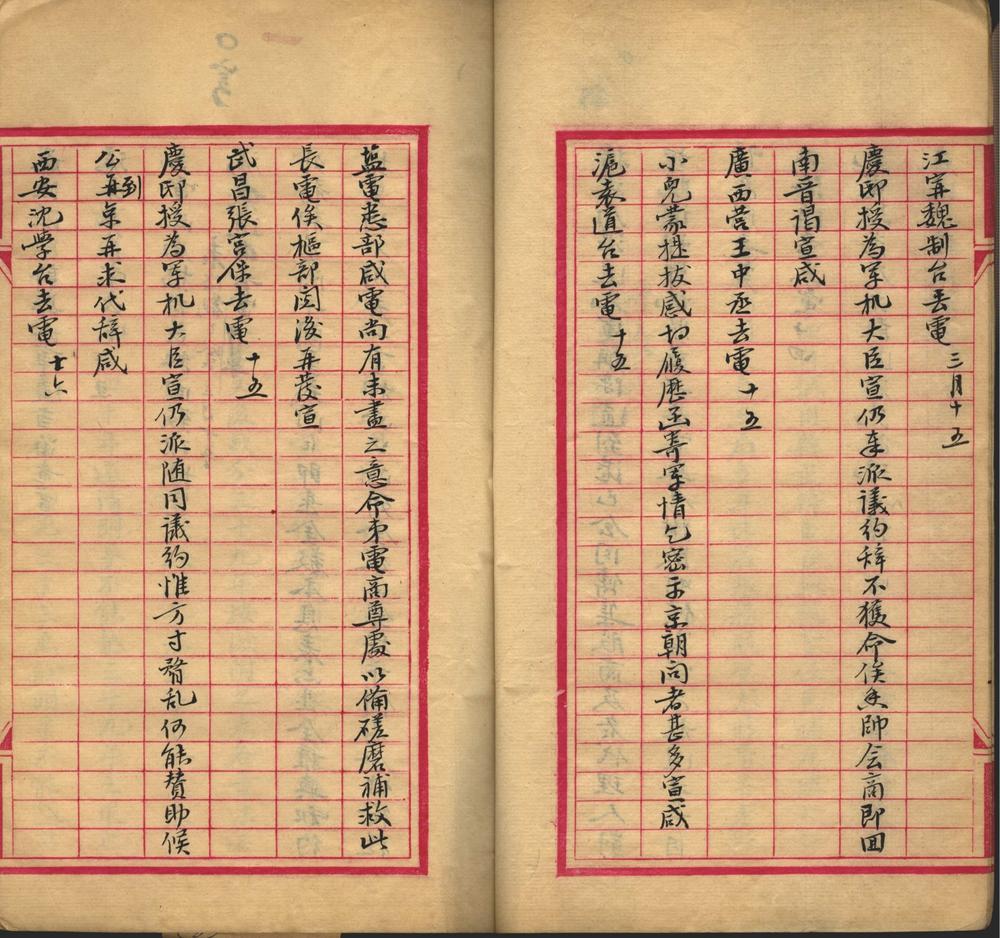 江寕魏制台去電 三月十五
慶邸授為军机大臣宣仍奉派議約辞不獲命俟香帥会商即回
南音谒宣咸
廣西营王中丞去電 十五
小兒蒙提拔感切履歷函寄军情乞密示京朝问者甚多宣咸
滬袁道台去電 十五
蓝電悉部咸電尚有未盡之意命弟電商尊處以備磋磨補救此
長電俟樞部閱後再發宣
武昌張宫保去電 十五
慶邸授為军机大臣宣仍派随同議約惟方寸瞀乱何能赞助候
公到再奏再求代辞咸
西安沈學台去電 十六